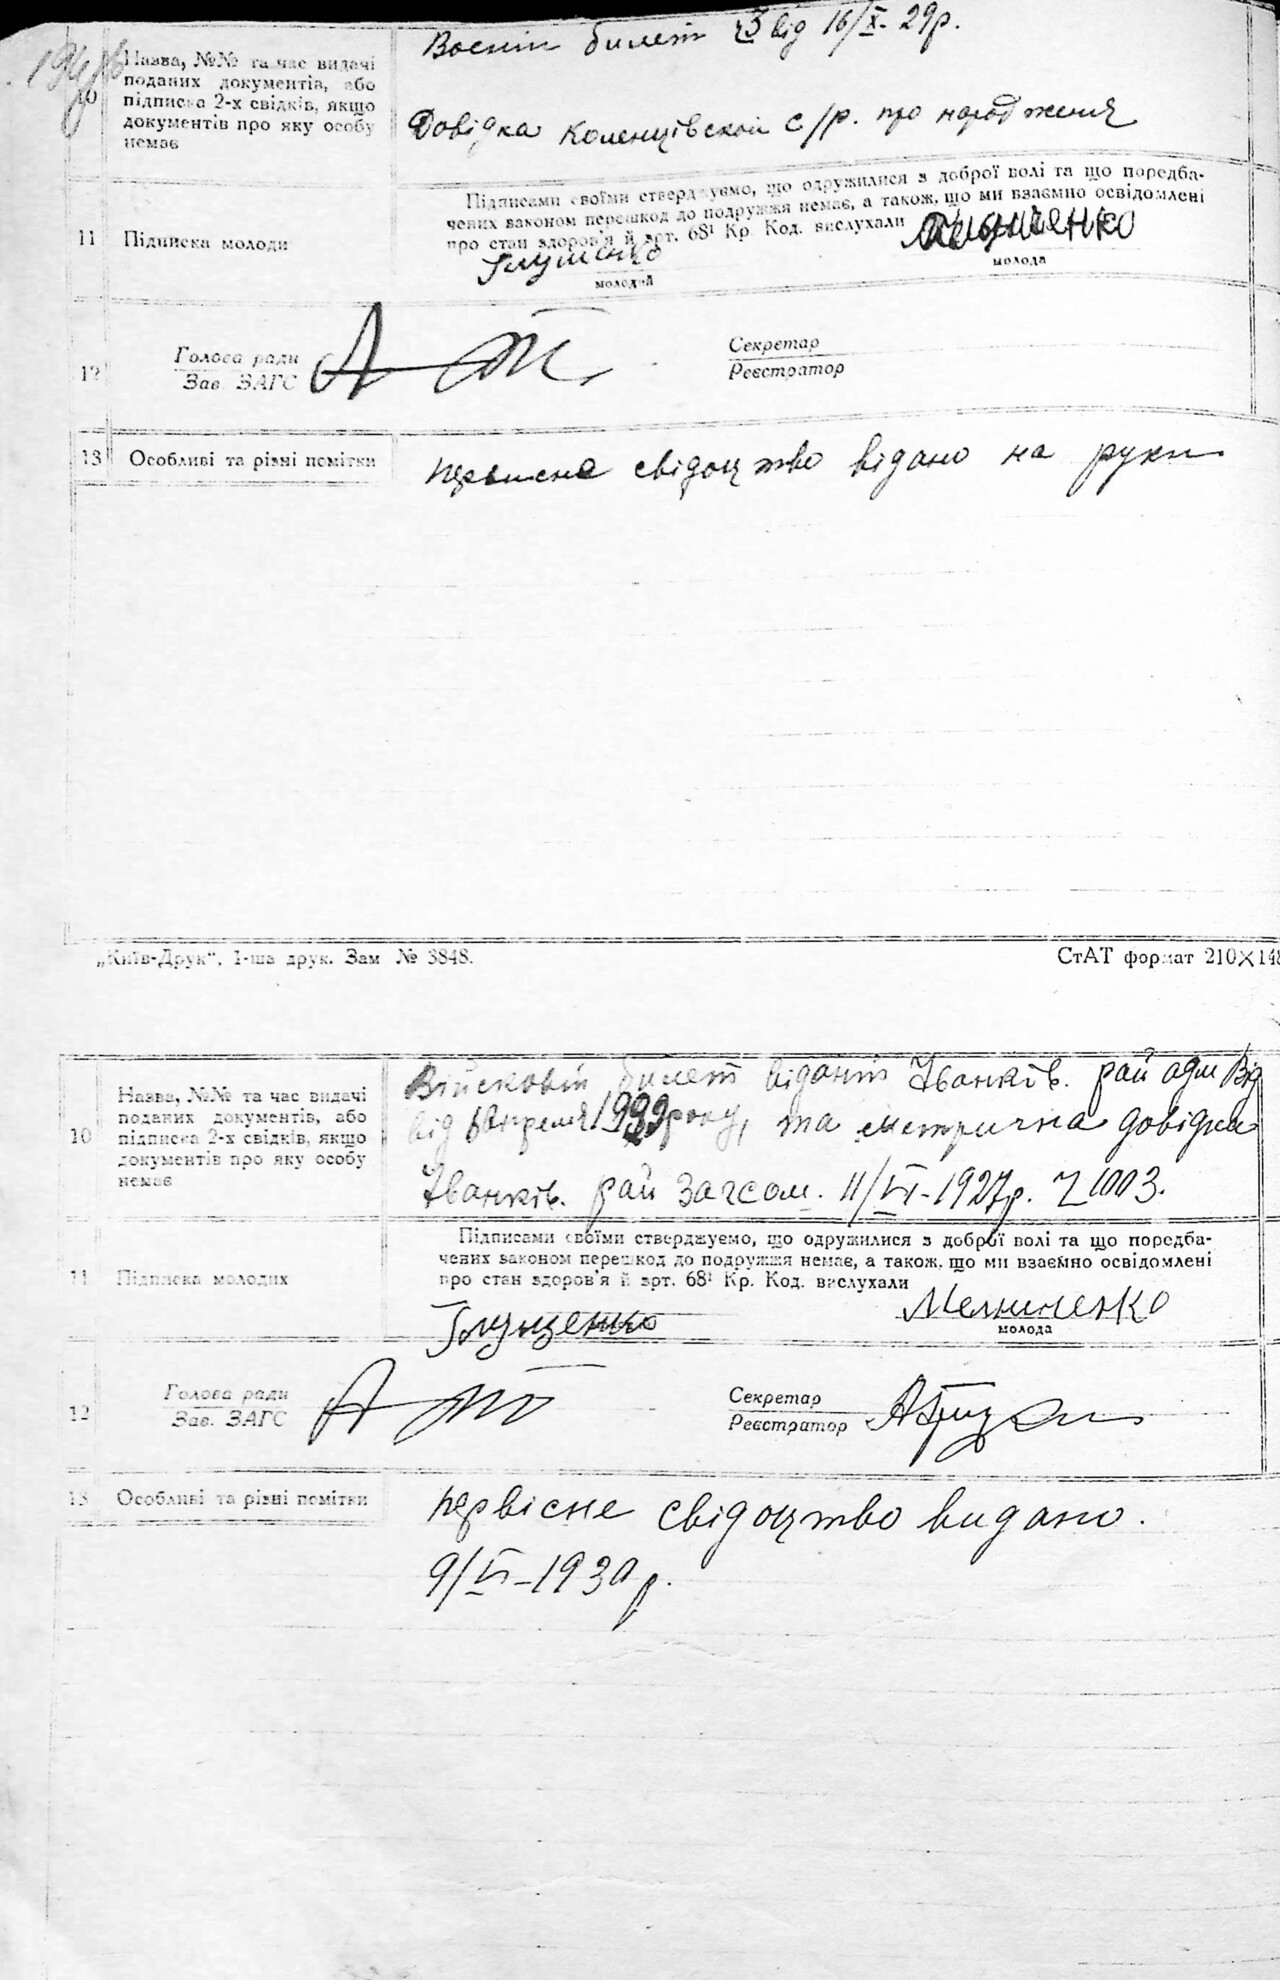 Военни билет ч3 від 16/X-29р.
10 Назва, №№ та час видачі
поданих документів, або
підписка 2-х свідків, якщо
документів про яку особу
немає
Довідка Коленцівской с/р. про народження
11 Підписка молоди
Підписами своїми стверджуємо, що одружилися з доброї волі та що передба-
чених законом перешкод до подружжя немає, а також, що ми взаємно освідомлені
про стан здоров'я й арт. 68¹ Кр. Код. вислухали
молодий
молода
12 Голова ради
Зав. ЗАГС
Секретар
Реєстратор
13 Особливі та різні помітки
первисне свідоцтво відано на руки
„Київ-Друк“, 1-ша друк. Зам № 3848.
СтАТ формат 210×148
10 Назва, №№ та час видачі
поданих документів, або
підписка 2-х свідків, якщо
документів про яку особу
немає
Військовій билет віданій Іванків. рай адм Від
від Апреля 1929 року, та метрична довідка
Іванків. рай Загсом. 11/VI-1927р. ч 1003.
11 Підписка молодих
Підписами своїми стверджуємо, що одружилися з доброї волі та що передба-
чених законом перешкод до подружжя немає, а також, що ми взаємно освідомлені
про стан здоров'я й арт. 68¹ Кр. Код. вислухали
Глущенко
Мельниченко
молода
12 Голова ради
Зав. ЗАГС
Секретар
Реєстратор
13 Особливі та різні помітки
первісне свідоцтво видано.
9/VI-1930р.